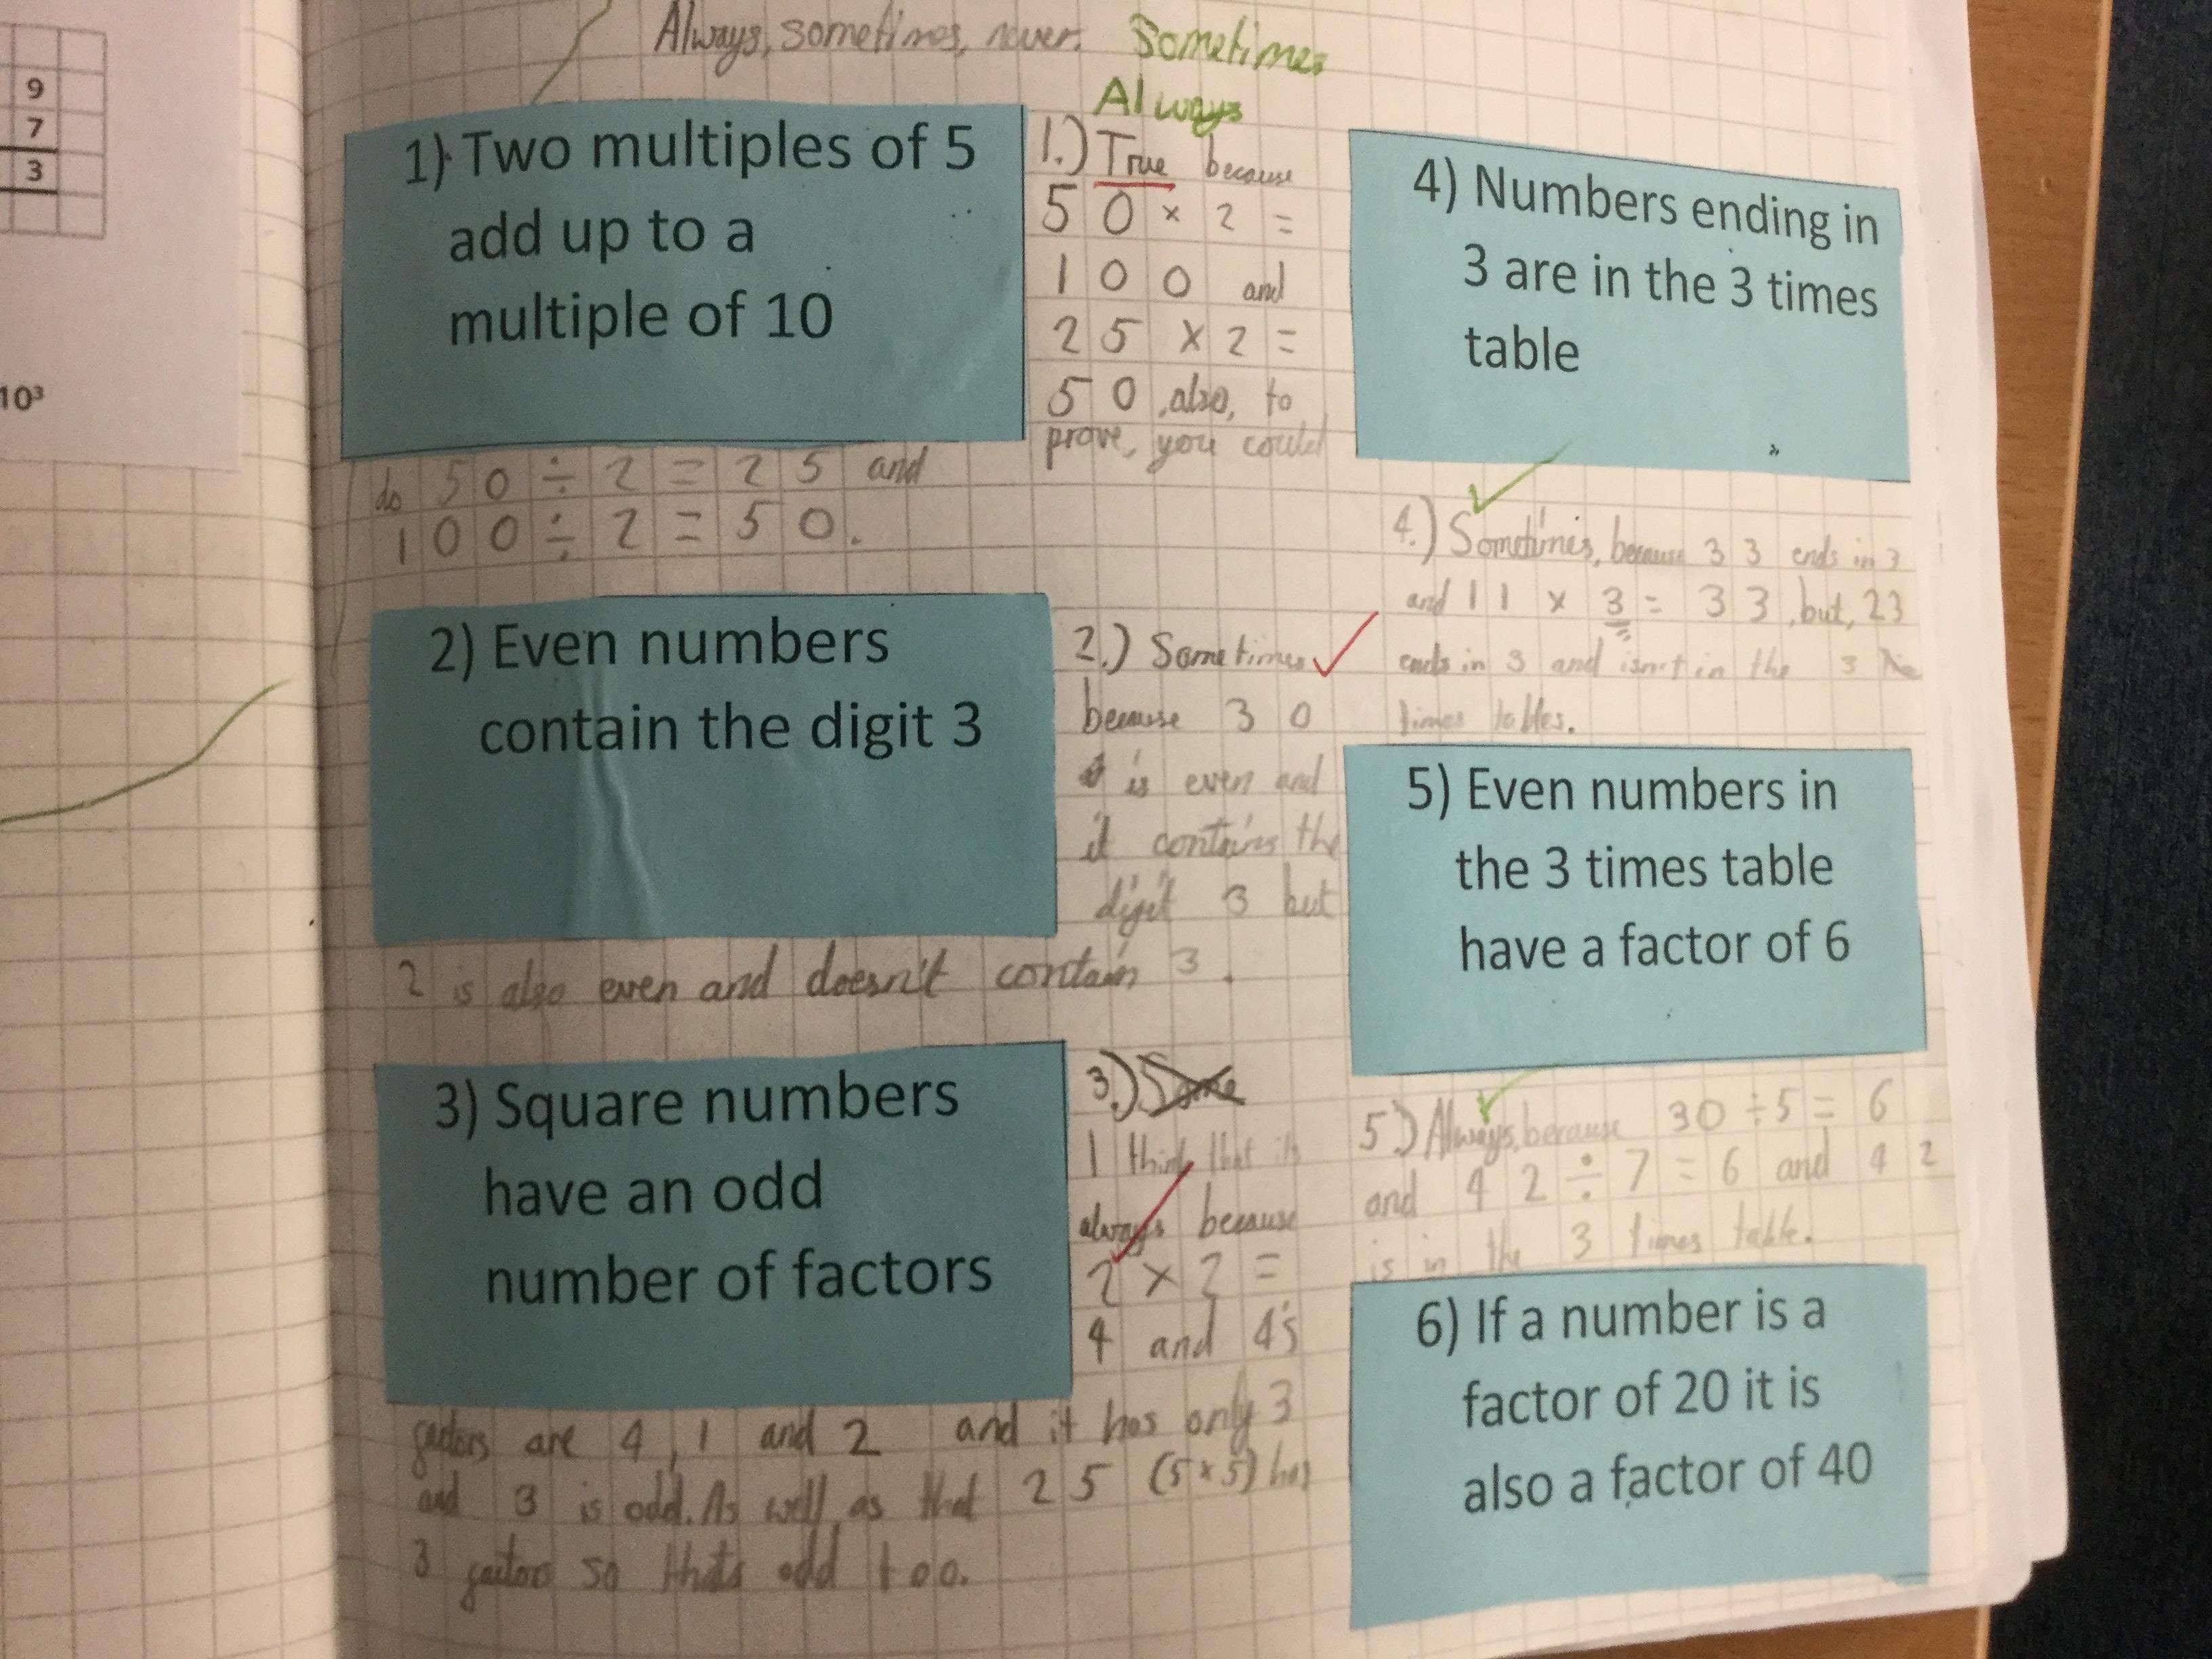 9
7
3
10³
Always, sometimes, never.
Sometimes
Always
1) Two multiples of 5
add up to a
multiple of 10
1.) True because
50 × 2 =
100 and
25 × 2 =
50, also, to
prove, you could
do 50 ÷ 2 = 25 and
100 ÷ 2 = 50.
2) Even numbers
contain the digit 3
2.) Sometimes
because 30
is even and
it contains the
digit 3 but
2 is also even and doesn't contain 3.
3) Square numbers
have an odd
number of factors
3.) Some
I think that its
always because
2 × 2 =
4 and 4's
factors are 4, 1 and 2 and it has only 3
and 3 is odd. As well as that 25 (5×5) has
3 factors so thats odd too.
4) Numbers ending in
3 are in the 3 times
table
4.) Sometimes, because 33 ends in 3
and 11 × 3 = 33, but, 23
ends in 3 and isn't in the 3
times tables.
5) Even numbers in
the 3 times table
have a factor of 6
5.) Always, because 30 ÷ 5 = 6
and 42 ÷ 7 = 6 and 42
is in the 3 times table.
6) If a number is a
factor of 20 it is
also a factor of 40